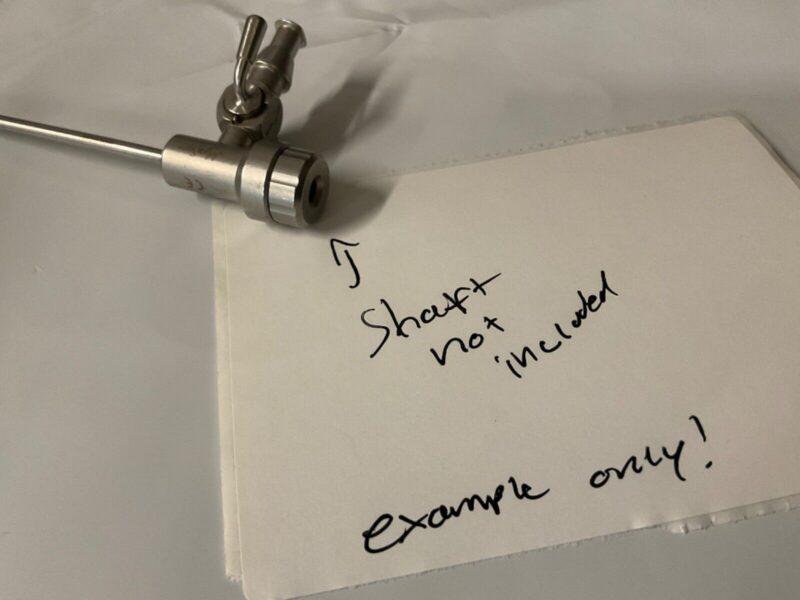 Shaft
not
included
example only!